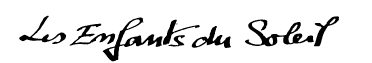 Les Enfants du Soleil